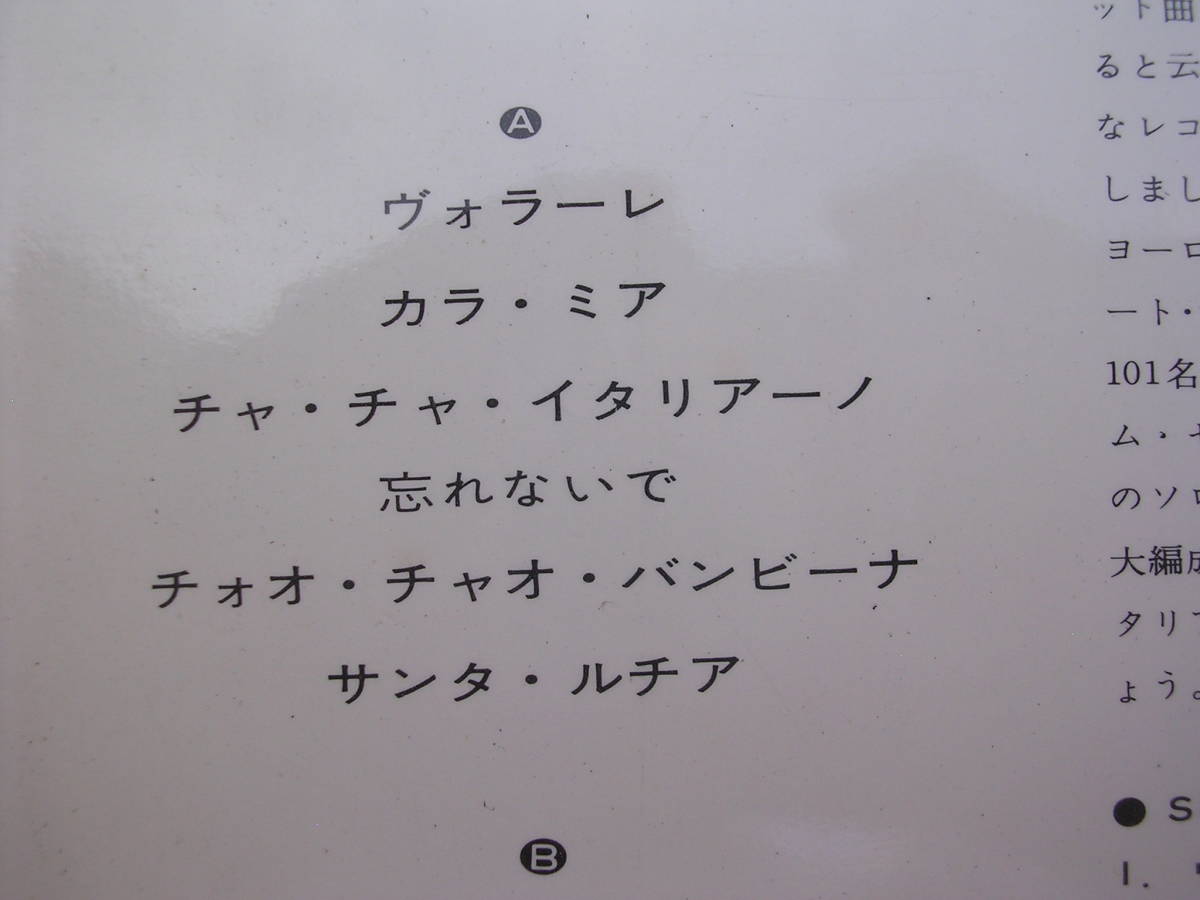 A
ヴォラーレ
カラ・ミア
チャ・チャ・イタリアーノ
忘れないで
チォオ・チャオ・バンビーナ
サンタ・ルチア
B
ット曲
ると云
なレコ
しまし
ヨーロ
ート・
101名
ム・
のソロ
大編成
タリア
ょう。
● S
1.